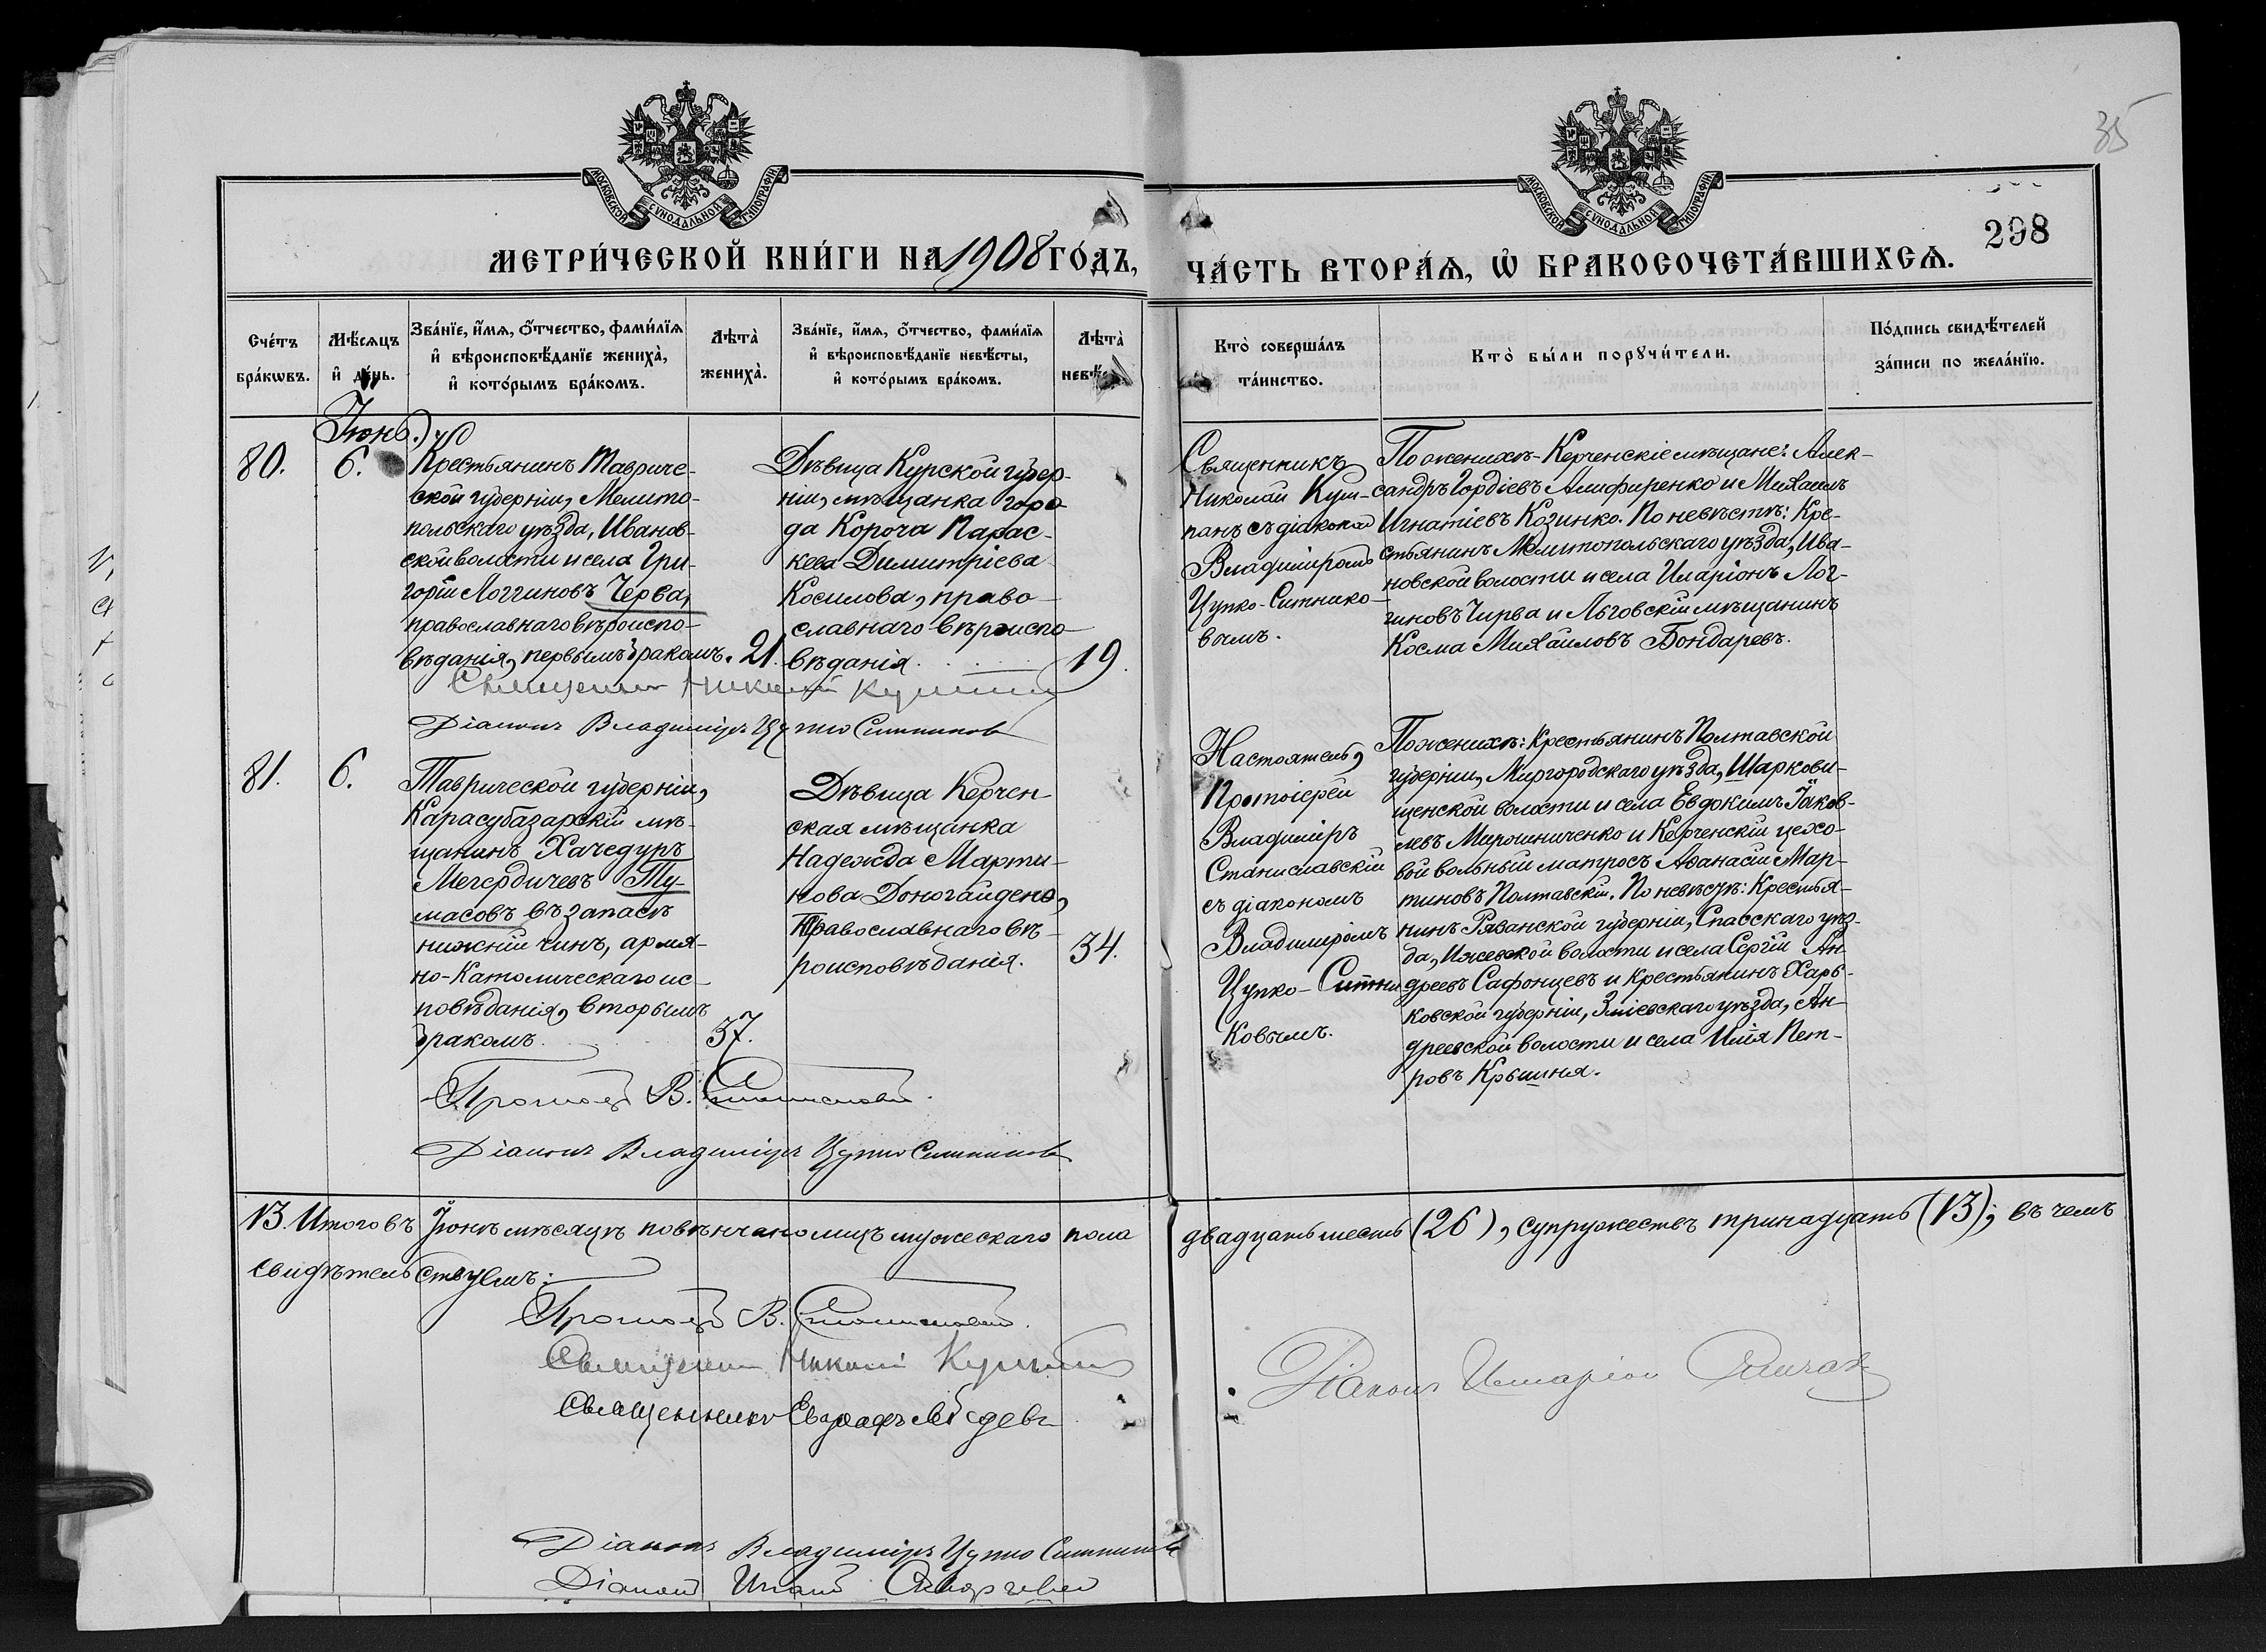 35
МОСКОВСКОЙ СУНОДАЛЬНОЙ ТИПОГРАФІИ
МОСКОВСКОЙ СУНОДАЛЬНОЙ ТИПОГРАФІИ
298
МЕТРИ́ЧЕСКОЙ КНИ́ГИ НА 1908 ГО́ДЪ,
ЧА́СТЬ ВТОРА́Ѧ, Ѡ҆ БРАКОСОЧЕТА́ВШИХСѦ.
Сче́тъ
бра́кѡвъ.
Мѣ́сѧцъ
и҆ де́нь.
Зва́нїе, и҆́мѧ, ѻ҆́тчество, фами́лїѧ
и҆ вѣроисповѣ́данїе жениха̀,
и҆ кото́рымъ бра́комъ.
Лѣта̀
жениха̀.
Зва́нїе, и҆́мѧ, ѻ҆́тчество, фами́лїѧ
и҆ вѣроисповѣ́данїе невѣ́сты,
и҆ кото́рымъ бра́комъ.
Лѣта̀
невѣ́с
Кто̀ соверша́лъ
та́инство.
Кто̀ бы́ли порꙋчи́тели.
По́дпись свидѣ́телей
за́писи по жела́нїю.
Іюнь.
80.
6.
Крестьянинъ Тавриче-
ской губерніи, Мелито-
польскаго уѣзда, Иванов-
ской волости и села Гри-
горій Логгиновъ Черва,
православнаго вѣроиспо-
вѣданія, первымъ бракомъ.
21.
Дѣвица Курской губер-
ніи, мѣщанка горо
да Короча Парас-
кева Димитріева
Косилова, право-
славнаго вѣроиспо-
вѣданія.
19.
Священникъ
Николай Куш-
панъ съ діакономъ
Владиміромъ
Цупко-Ситнико-
вымъ.
По женихѣ - Керченскіе мѣщане: Алек-
сандръ Гордіевъ Алифиренко и Михаилъ
Игнатіевъ Козинко. По невѣстѣ: Кре-
стьянинъ Мелитопольскаго уѣзда, Ива-
новской волости и села Иларіонъ Лог-
гиновъ Чирва и Льговскій мѣщанинъ
Косма Михаиловъ Бондаревъ.
Священникъ Николай
Діаконъ Владиміръ Цупко Ситников
81.
6.
Таврической губерніи,
Карасубазарскій мѣ-
щанинъ Хачедуръ
Мегердичевъ Ту-
масовъ въ запасѣ
нижній чинъ, армя-
но-Католическаго ис-
повѣданія, вторымъ
бракомъ.
37.
Дѣвица Керчен-
ская мѣщанка
Надежда Марти-
нова Доногайдено,
Православнаго вѣ-
роисповѣданія.
34.
Настоятель,
Протоіерей
Владиміръ
Станиславскій
съ діакономъ
Владиміромъ
Цупко-Ситни
ковымъ.
По женихѣ: Крестьянинъ Полтавской
губерніи, Миргородскаго уѣзда, Шаркови-
щенской волости и села Евдокимъ Іаков-
левъ Мирошниченко и Керченскій цехо-
вой вольный матросъ Аѳанасій Мар-
тиновъ Полтавскій. По невѣстѣ: Крестья-
нинъ Рязанской губерніи, Спасскаго уѣз-
да, Ижевской волости и села Сергій Ан-
дреевъ Сафонцевъ и крестьянинъ Харь-
ковской губерніи, Зміевскаго уѣзда, Ан-
дреевской волости и села Илія Пет-
ровъ Крышня.
В. Станиславскій
Діаконъ Владиміръ Цупко Ситников
13. Итого въ Іюнѣ мѣсяцѣ повѣнчано лицъ мужескаго пола двадцать шесть (26), супружествъ тринадцать (13); въ чемъ
свидѣтельствуемъ:
В. Станиславскій
Священникъ Николай
Священникъ Евграфъ
Діаконъ Иларіонъ
Діаконъ Владиміръ Цупко Ситников
Діаконъ